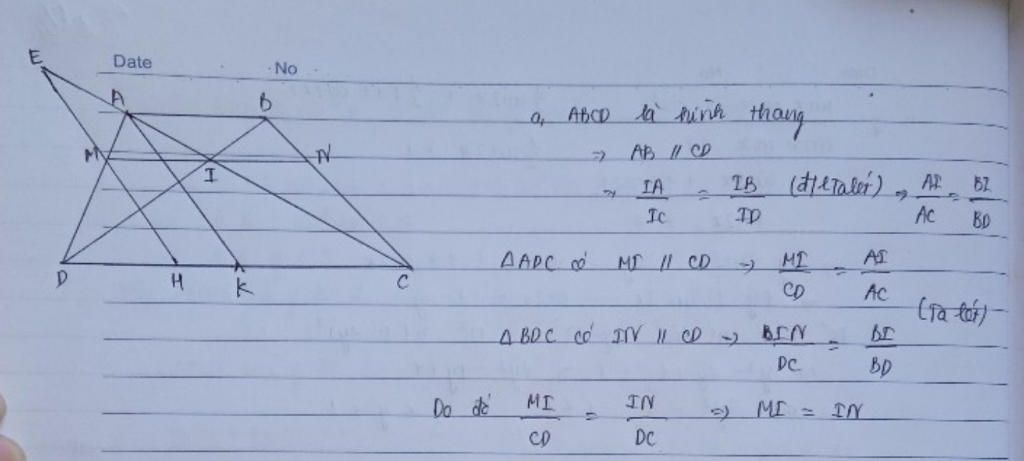 Date No
E
A B
M N
I
D H K C
a, ABCD là hình thang
⇒ AB // CD
⇒ IA/IC = IB/ID (đlí Talét) ⇒ AI/AC = BI/BD
ΔADC có MI // CD ⇒ MI/CD = AI/AC
(Ta lét)
ΔBDC có IN // CD ⇒ IN/DC = BI/BD
Do đó MI/CD = IN/DC ⇒ MI = IN